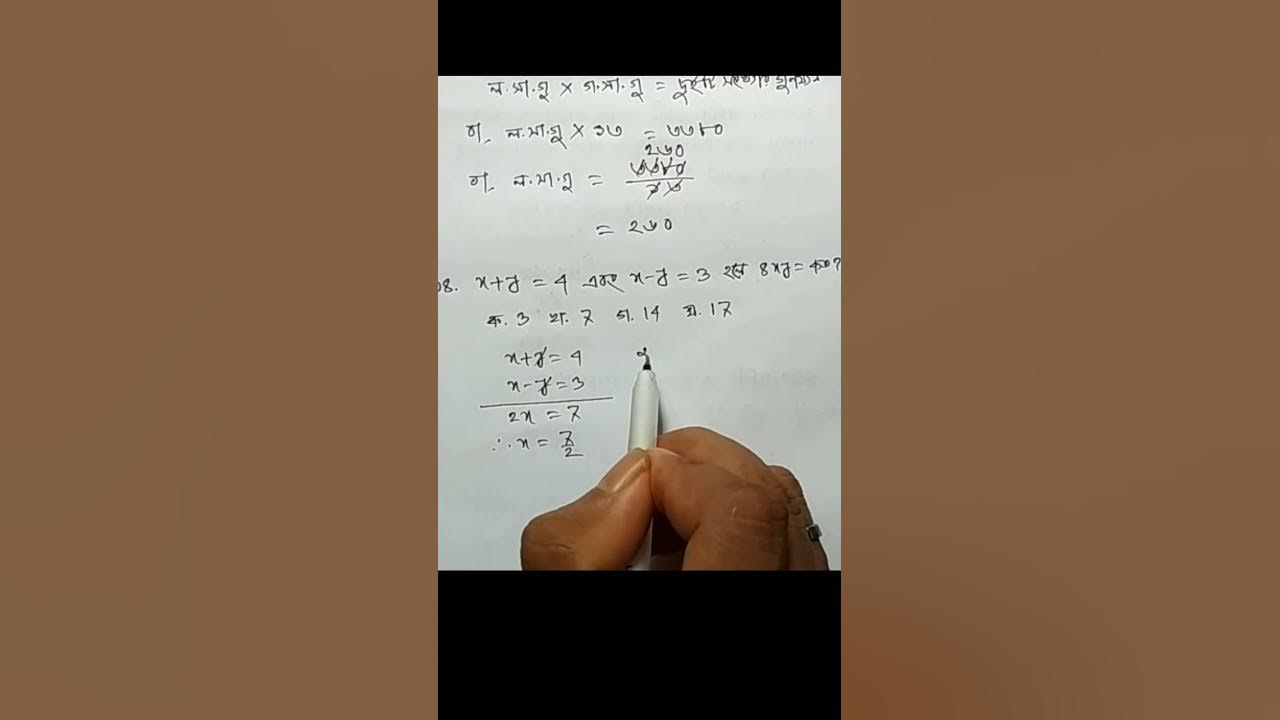 ল.সা.গু × গ.সা.গু = দুইটি সংখ্যার গুনফল
বা, ল.সা.গু × ১৩ = ৩৩৮০
২৬০
বা, ল.সা.গু = ৩৩৮০
১৩
= ২৬০
08. x+y = 4 এবং x-y = 3 হলে 8xy = কত?
ক. 3 খ. 7 গ. 14 ঘ. 17
x+y = 4
x-y = 3
2x = 7
∴ x = 7/2